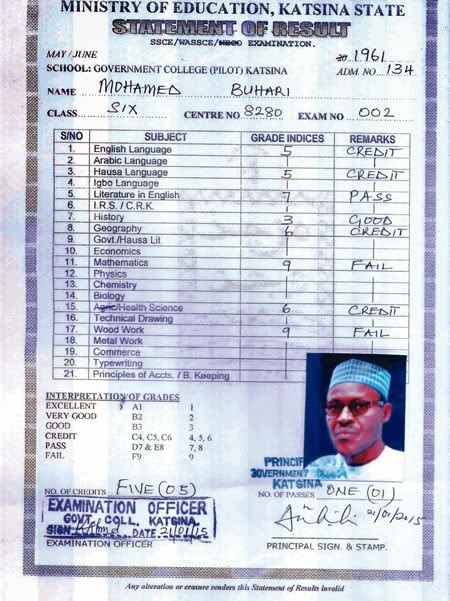 MINISTRY OF EDUCATION, KATSINA STATE
STATEMENT OF RESULT
SSCE/WASSCE/NECO EXAMINATION.
MAY/JUNE 20 1961
SCHOOL: GOVERNMENT COLLEGE (PILOT) KATSINA ADM. NO. 134
NAME MOHAMED BUHARI
CLASS SIX CENTRE NO 8280 EXAM NO 002
S/NO SUBJECT GRADE INDICES REMARKS
1. English Language 5 CREDIT
2. Arabic Language
3. Hausa Language 5 CREDIT
4. Igbo Language
5. Literature in English 7 PASS
6. I.R.S. / C.R.K.
7. History 3 GOOD
8. Geography 6 CREDIT
9. Govt./Hausa Lit
10. Economics
11. Mathematics 9 FAIL
12. Physics
13. Chemistry
14. Biology
15. Agric/Health Science 6 CREDIT
16. Technical Drawing
17. Wood Work 9 FAIL
18. Metal Work
19. Commerce
20. Typewriting
21. Principles of Accts. / B. Keeping
INTERPRETATION OF GRADES
EXCELLENT A1 1
VERY GOOD B2 2
GOOD B3 3
CREDIT C4, C5, C6 4, 5, 6
PASS D7 & E8 7, 8
FAIL. F9 9
KATSINA
NO. OF CREDITS FIVE (05) NO. OF PASSES ONE (01)
EXAMINATION OFFICER
GOVT. COLL. KATSINA.
SIGN DATE 21/01/15
21/01/2015
EXAMINATION OFFICER PRINCIPAL SIGN. & STAMP.
Any alteration or erasure renders this Statement of Results invalid